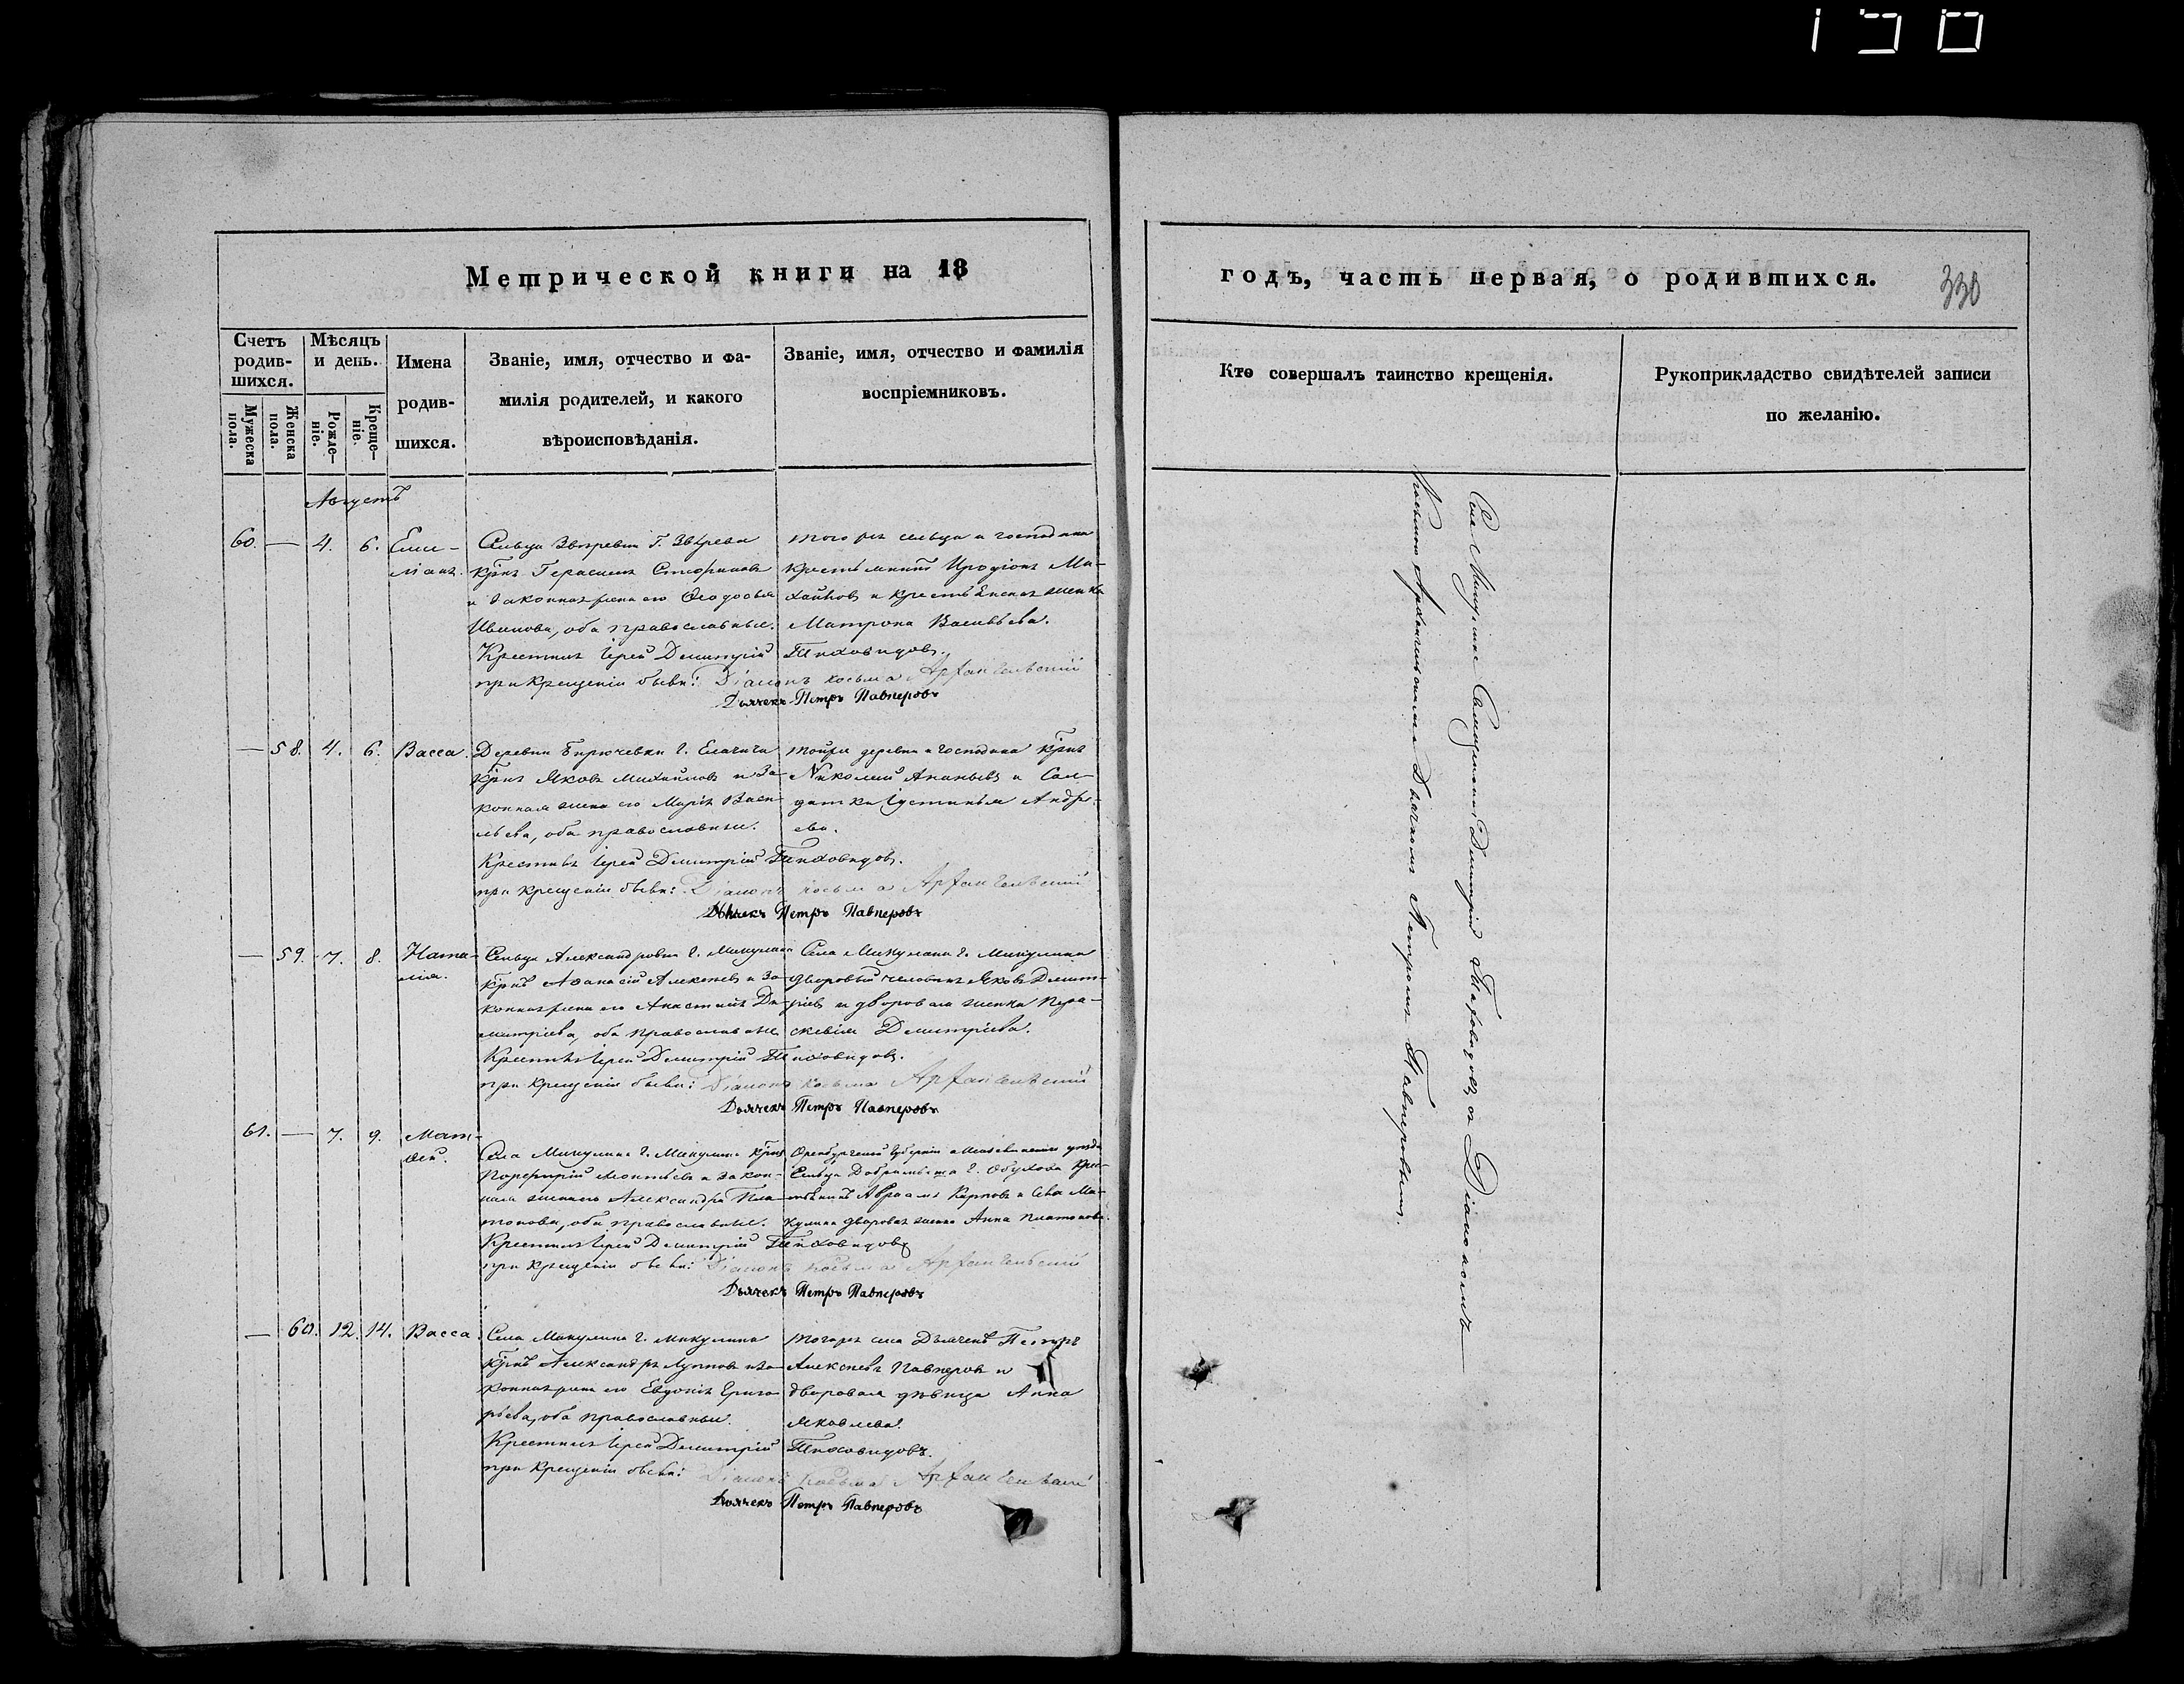 Метрической книги на 18
годъ, часть первая, о родившихся.
330
Счетъ родившихся.
Мужеска пола.
Женска пола.
Мѣсяцъ и день.
Рожденіе.
Крещеніе.
Имена родившихся.
Званіе, имя, отчество и фамилія родителей, и какого вѣроисповѣданія.
Званіе, имя, отчество и фамилія воспріемниковъ.
Кто совершалъ таинство крещенія.
Рукоприкладство свидѣтелей записи по желанію.
Августъ
60. — 4. 6. Емиліанъ.
Сельца Звѣревки Г. Звѣрева
Крѣнъ Герасимъ
и законная жена его Ѳеодосья
Иванова, оба православные.
того же сельца и господина
крестьянинъ Иродіонъ Михайловъ и крестьянская женка
Матрона Васильева.
Крестилъ Іерей Димитрій Тиховидовъ.
при Крещеніи были: Діаконъ Косьма Архангельскій
Дьячекъ Петръ Павперовъ
— 58. 4. 6. Васса.
Деревни Бирючевки Г. Елагина
Крѣнъ Яковъ Михайловъ и законная жена его Марія Васильева, оба православные.
той же деревни и господина Крѣнъ
Николай Ананьевъ и Солдатка Іустинья Андреева.
Крестилъ Іерей Димитрій Тиховидовъ.
при крещеніи были: Діаконъ Косьма Архангельскій
Дьячекъ Петръ Павперовъ
— 59. 7. 8. Наталія.
Сельца Александровки Г. Микулина
Крѣнъ Аѳанасій Алексѣевъ и законная жена его Анастасія Димитріева, оба православные
Села Микулина Г. Микулина
дворовый человѣкъ Яковъ Димитріевъ и дворовая женка Параскевія Димитріева.
Крестилъ Іерей Димитрій Тиховидовъ.
при Крещеніи были: Діаконъ Косьма Архангельскій
Дьячекъ Петръ Павперовъ
61. — 7. 9. Матѳей.
Села Микулина Г. Микулина Крѣнъ
Порфирій Леонтьевъ и законная жена его Александра Платонова, оба православные.
Оренбургской Губерніи уѣзда
Сельца Г. Обухова крестьянинъ Авраамъ Карповъ и Села Микулина дворовая женка Анна Платонова.
Крестилъ Іерей Димитрій Тиховидовъ
при Крещеніи были: Діаконъ Косьма Архангельскій
Дьячекъ Петръ Павперовъ
— 60. 12. 14. Васса.
Села Микулина Г. Микулина
Крѣнъ Александръ Лупповъ и законная жена его Евдокія Григорьева, оба православные.
тогоже села Дьячекъ Петръ
Алексѣевъ Павперовъ и
дворовая дѣвица Анна
Яковлева.
Крестилъ Іерей Димитрій Тиховидовъ.
при Крещеніи были: Діаконъ Косьма Архангельскій
Дьячекъ Петръ Павперовъ
Села Микулина Священникъ Димитрій Тиховидовъ, съ Діакономъ
Косьмою Архангельскимъ и Дьячкомъ Петромъ Павперовымъ.